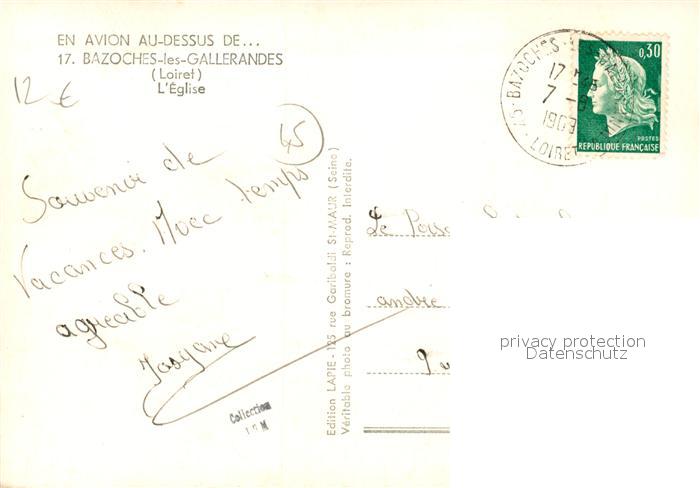 EN AVION AU-DESSUS DE...
17. BAZOCHES-les-GALLERANDES
(Loiret)
L'Église
12 €
45
Souvenir de
Vacances. Avec temps
agréable
Josyane
Collection
Edition LAPIE - 125 rue Garibaldi St-MAUR (Seine)
Véritable photo au bromure : Reprod. Interdite.
45-BAZOCHES-
17
7 -
LOIRET
0,30
POSTES
REPUBLIQUE FRANÇAISE
Le
André
privacy protection
Datenschutz